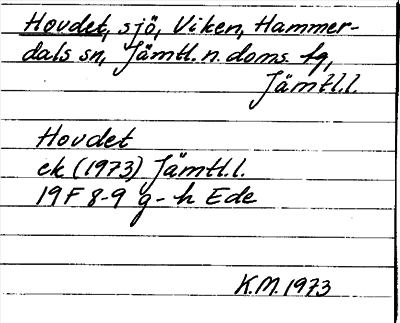 Hovdet, sjö, Viken, Hammer-
dals sn, Jämtl. n. doms. tg,
Jämtl. l.
Hovdet
ek (1973) Jämtl. l.
19F 8-9 g-h Ede
K.M. 1973